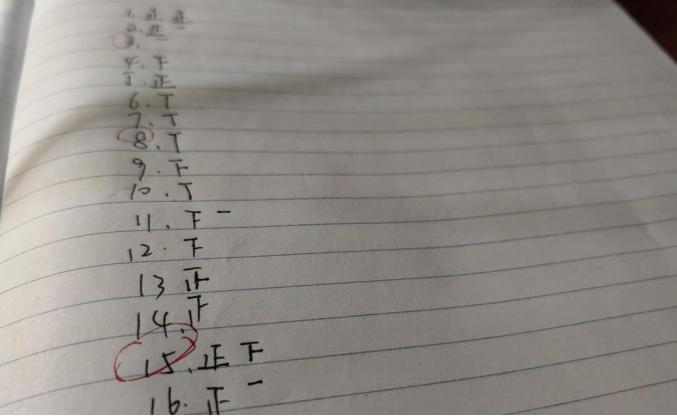 1. 正 正
2. 正
3.
4. 下
5. 正
6. T
7. T
8. T
9. 下
10. T
11. 下 一
12. 下
13 正
14. 正
15. 正 下
16. 正 一